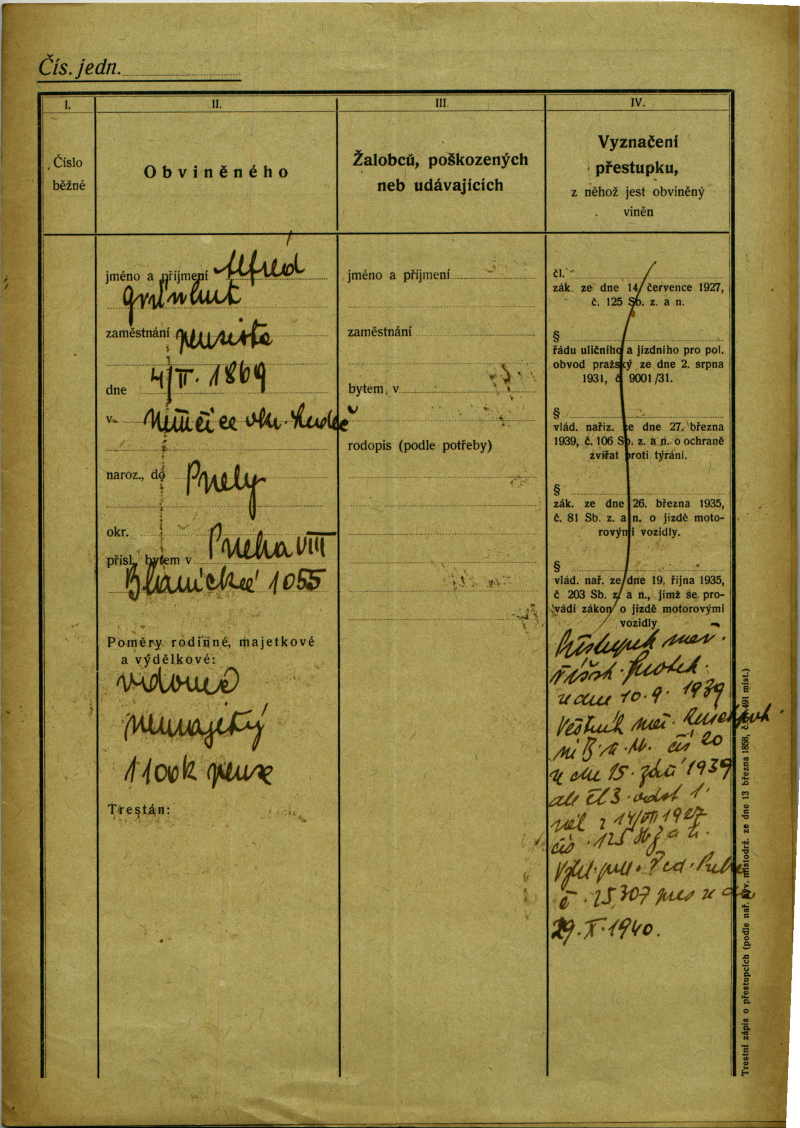 Čís. jedn.
I.
II.
III.
IV.
Číslo
běžné
Obviněného
Žalobců, poškozených
neb udávajících
Vyznačení
přestupku,
z něhož jest obviněný
viněn
jméno a příjmení Alfréd
Grünhut
zaměstnání pensista
dne 4/II. 1869
v Němčice okr.
naroz., do Prahy
okr.
přísl. bytem v Praha VIII
1055
Poměry rodinné, majetkové
a výdělkové:
vdovec
nemajetný
1100K pense
Trestán:
jméno a příjmení
zaměstnání
bytem v
rodopis (podle potřeby)
čl.
zák. ze dne 14. července 1927,
č. 125 Sb. z. a n.
§
řádu uličního a jízdního pro pol.
obvod pražský ze dne 2. srpna
1931, č. 9001/31.
§
vlád. nařiz. ze dne 27. března
1939, č. 106 Sb. z. a n. o ochraně
zvířat proti týrání.
§
zák. ze dne 26. března 1935,
č. 81 Sb. z. a n. o jízdě moto-
rovými vozidly.
§
vlád. nař. ze dne 19. října 1935,
č 203 Sb. z. a n., jímž se pro-
vádí zákon o jízdě motorovými
vozidly
Přestupek nař.
říšsk. Protek.
ze dne 10. 9. 1939
Věstník nař.
B. a M. čís 20
ze dne 15. září 1939
dle čl 3. odst 1.
z 14/VII 1927
čís. 125 Sb z a n.
Vyhl. pol. řed. Praha
č. 25.307 pres ze dne
29. X. 1940.
Trestní zápis o přestupcích (podle nař. býv. místodrž. ze dne 13 března 1858, č. 491 míst.)